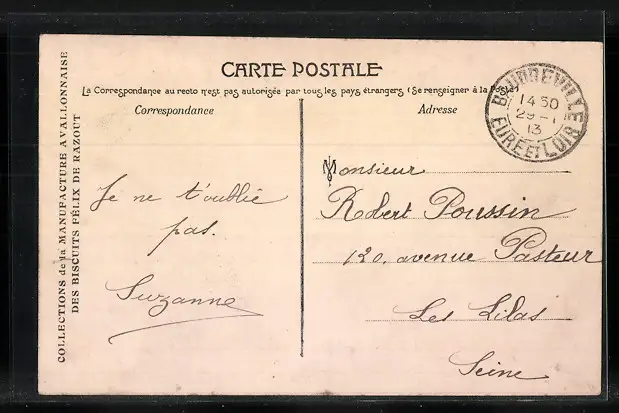 CARTE POSTALE
La Correspondance au recto n'est pas autorisée par tous les pays étrangers (Se renseigner à la Poste)
Correspondance
Adresse
EURE ET LOIR
14 50
29 - 1
13
COLLECTIONS de la MANUFACTURE AVALLONNAISE
DES BISCUITS FÉLIX DE RAZOUT
Je ne t'oublie
pas.
Suzanne
Monsieur
Robert Poussin
120, avenue Pasteur
Les Lilas
Seine